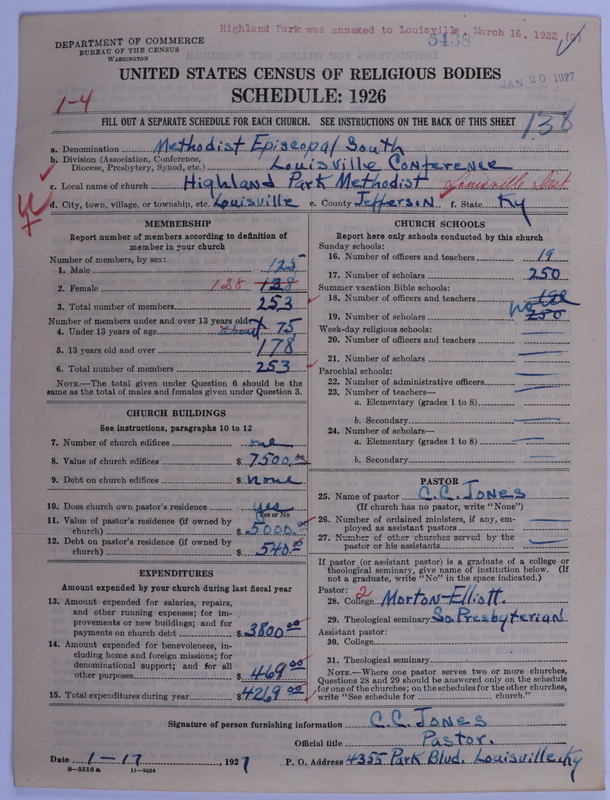 Highland Park was annexed to Louisville, March 16, 1922, (c)
5438
DEPARTMENT OF COMMERCE
BUREAU OF THE CENSUS
WASHINGTON
JAN 30 1927
UNITED STATES CENSUS OF RELIGIOUS BODIES
SCHEDULE: 1926
1-4
FILL OUT A SEPARATE SCHEDULE FOR EACH CHURCH. SEE INSTRUCTIONS ON THE BACK OF THIS SHEET
138
a. Denomination Methodist Episcopal South
b. Division (Association, Conference,
Diocese, Presbytery, Synod, etc.) Louisville Conference
c. Local name of church Highland Park Methodist Louisville Dist.
d. City, town, village, or township, etc. Louisville e. County Jefferson f. State Ky
MEMBERSHIP
Report number of members according to definition of
member in your church
Number of members, by sex:
1. Male 125
2. Female 128 138
3. Total number of members 253
Number of members under and over 13 years old:
4. Under 13 years of age about 75
5. 13 years old and over 178
6. Total number of members 253
NOTE.—The total given under Question 6 should be
same as the total of males and females given under Question 3.
CHURCH BUILDINGS
See instructions, paragraphs 10 to 12
7. Number of church edifices one
8. Value of church edifices $ 7500.00
9. Debt on church edifices $ none
10. Does church own pastor's residence yes
(Yes or No
11. Value of pastor's residence (if owned by
church) $ 5000.00
12. Debt on pastor's residence (if owned by
church) $ 540.00
EXPENDITURES
Amount expended by your church during last fiscal year
13. Amount expended for salaries, repairs,
and other running expenses; for im-
provements or new buildings; and for
payments on church debt $ 3800.00
14. Amount expended for benevolences, in-
cluding home and foreign missions; for
denominational support; and for all
other purposes $ 469.00
15. Total expenditures during year $ 4269.00
CHURCH SCHOOLS
Report here only schools conducted by this church
Sunday schools:
16. Number of officers and teachers 19
17. Number of scholars 250
Summer vacation Bible schools:
18. Number of officers and teachers
19. Number of scholars no 250
Week-day religious schools:
20. Number of officers and teachers
21. Number of scholars
Parochial schools:
22. Number of administrative officers
23. Number of teachers—
a. Elementary (grades 1 to 8)
b. Secondary
24. Number of scholars—
a. Elementary (grades 1 to 8)
b. Secondary
PASTOR
25. Name of pastor C.C. Jones
(If church has no pastor, write "None")
26. Number of ordained ministers, if any, em-
ployed as assistant pastors
27. Number of other churches served by the
pastor or his assistants
If pastor (or assistant pastor) is a graduate of a college or
theological seminary, give name of institution below. (If
not a graduate, write "No" in the space indicated.)
Pastor: 2
28. College Morton-Elliott.
29. Theological seminary So. Presbyterian
Assistant pastor:
30. College
31. Theological seminary
NOTE.—Where one pastor serves two or more churches,
Questions 28 and 29 should be answered only on the schedule
for one of the churches; on the schedules for the other churches,
write "See schedule for church."
Signature of person furnishing information C.C. Jones
Official title Pastor.
Date 1-17, 1927 P. O. Address 4355 Park Blvd. Louisville Ky
8—5518 a 11—9054